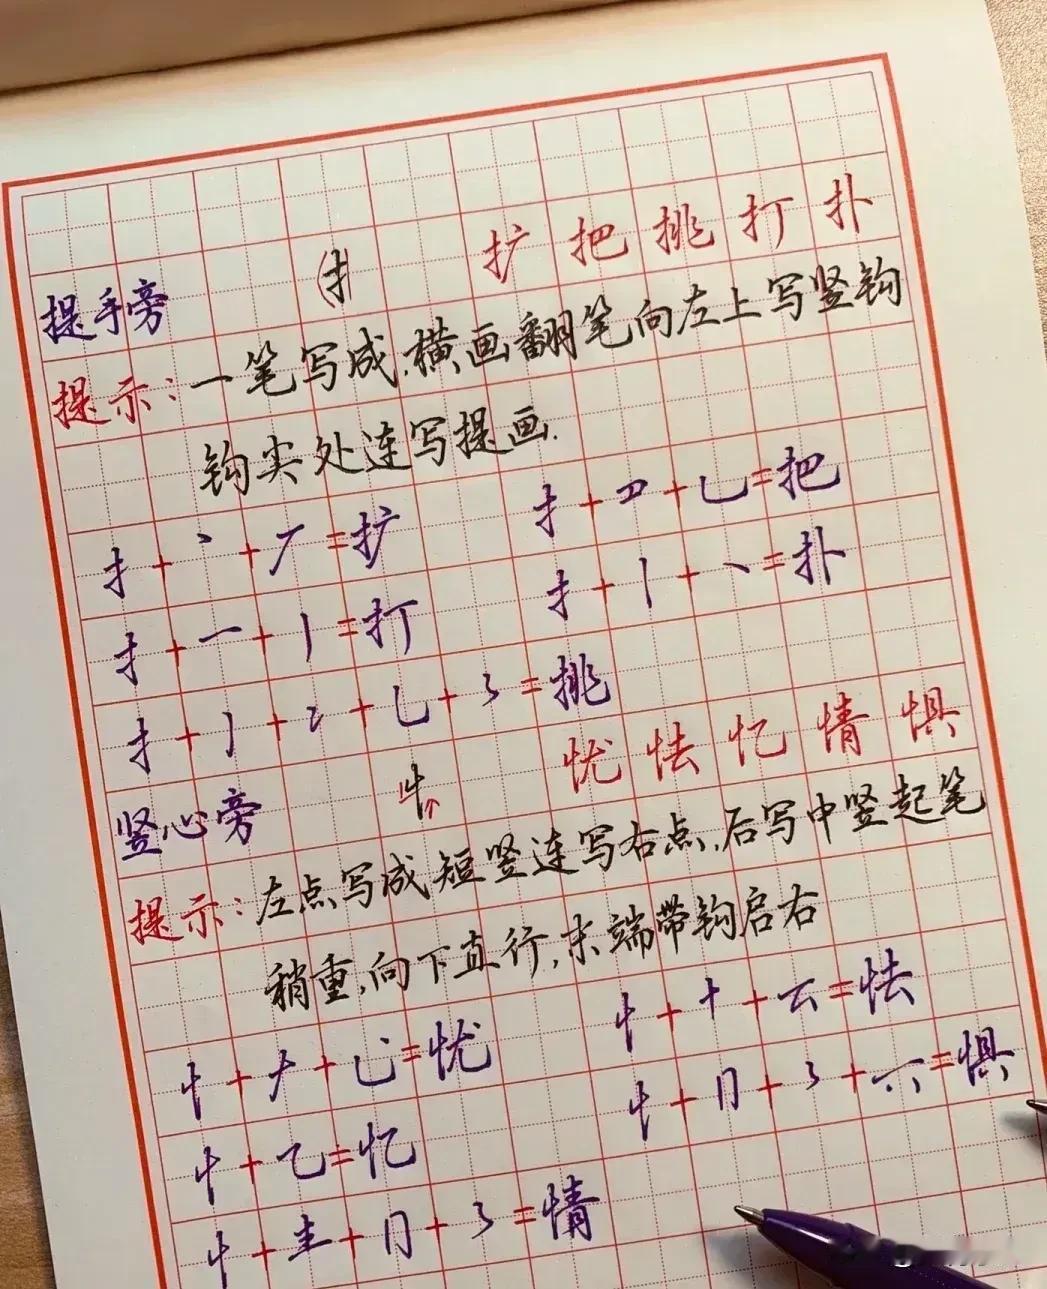 提手旁 扌 扩 把 挑 打 扑
提示：一笔写成，横画翻笔向左上写竖钩
钩尖处连写提画.
扌+丶+丆=扩 扌+罒+乚=把
扌+一+亅=打 扌+丨+丶=扑
扌+丿++乚+=挑
竖心旁 忄 忧 怯 忆 情 惧
提示：左点写成短竖连写右点，后写中竖起笔
稍重，向下直行，末端带钩启右
忄+ナ+乚=忧 忄+十+云=怯
忄+乙=忆 忄+冂+=惧
忄+龶+冂+=情